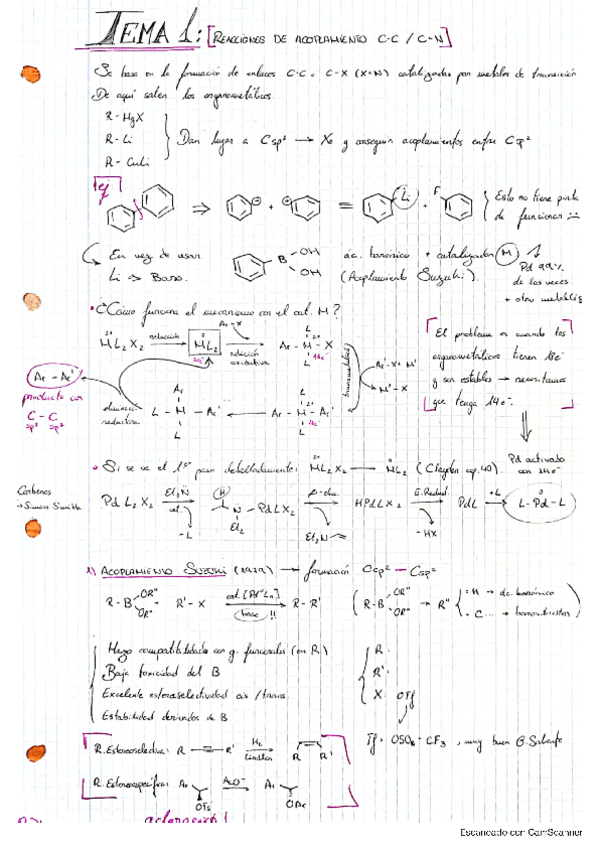 TEMA 1: [REACCIONES DE ACOPLAMIENTO C-C / C-N]
Se basa en la formación de enlaces C-C o C-X (X=N) catalizadas por metales de transición
De aquí salen los organometálicos.
R-HgX
R-Li
R-CuLi
Dan lugar a Csp² → X₀ y consiguen acoplamientos entre Csp²
ej
⇒ ⊖ + ⊕ = Li + F
Esto no tiene pinta de funcionar
En vez de usar Li → Boro.
B OH OH
ác. borónico + catalizador (M)
(Acoplamiento Suzuki).
Pd 99%
de las veces
+ otro metal
• ¿Cómo funciona el mecanismo con el cat. M?
ML₂X₂ reducción ML₂ Ar-X adición oxidativa Ar-M-X
L L 16e⁻
transmetalación
Ar'-X+M'
M'-X
El problema es cuando los
organometálicos tienen 18e⁻
y son estables → necesitamos
que tenga 14e⁻.
Ar-Ar'
producto con
C-C
sp² sp²
eliminación
reductora
L-M-Ar'
Ar
L
Ar-M-Ar'
L L
16e⁻
• Si se ve el 1er paso detalladamente: ML₂X₂ → ML₂ (Clayden cap. 40).
Pd activado
con 14e⁻
Carbenos
→ Simmons Smith
Pd L₂X₂ Et₃N -L H N-PdLX₂ Et₂ β-elim. Et₂N HPdLX₂ E. Reduct. -HX PdL +L L-Pd-L
1) ACOPLAMIENTO SUZUKI (1979) → formación Csp² - Csp²
R-B OR'' OR'' + R'-X cat. [Pd⁰Ln] base!! R-R'
(R-B OR'' OR'' → R'' = H → ác. borónico
= C... → boronoésteres)
Mayor compatibilidad con g. funcionales (en R)
Baja toxicidad del B
Excelente estereoselectividad cis/trans.
Estabilidad derivados de B
R.
R'.
X. OTf
Tf = OSO₂-CF₃, muy buen G. Saliente
R. Estereoselectiva: R R' H₂ Lindlar R R'
R. Estereoespecífica: Ar OTs AcO⁻ Ar OAc
aclaración!
Escaneado con CamScanner